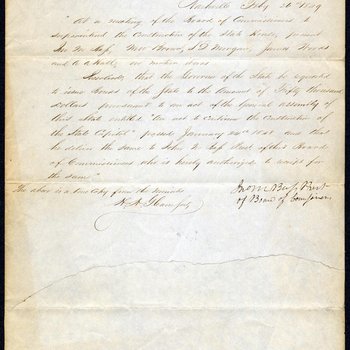 Nashville Feby 26th 1849
"At a meeting of the Board of Commissioners to
superintend the Construction of the State House, present
Jno M Bass, Moses Brown, S D Morgan, James Woods
and
Resolved, that the Governor of the State be requested
to issue Bonds of the State to the Amount of Fifty thousand
Dollars pursuant to an act of the General Assembly of
this State entitled "An act to continue the Construction of
the State Capitol" passed January 24th 1848 and that
he deliver the same to John M Bass Prest of this Board
of Commissioners who is hereby authorized to receipt for
the same"
The above is a true Copy from the minutes
Jno M Bass Prest
of Board of